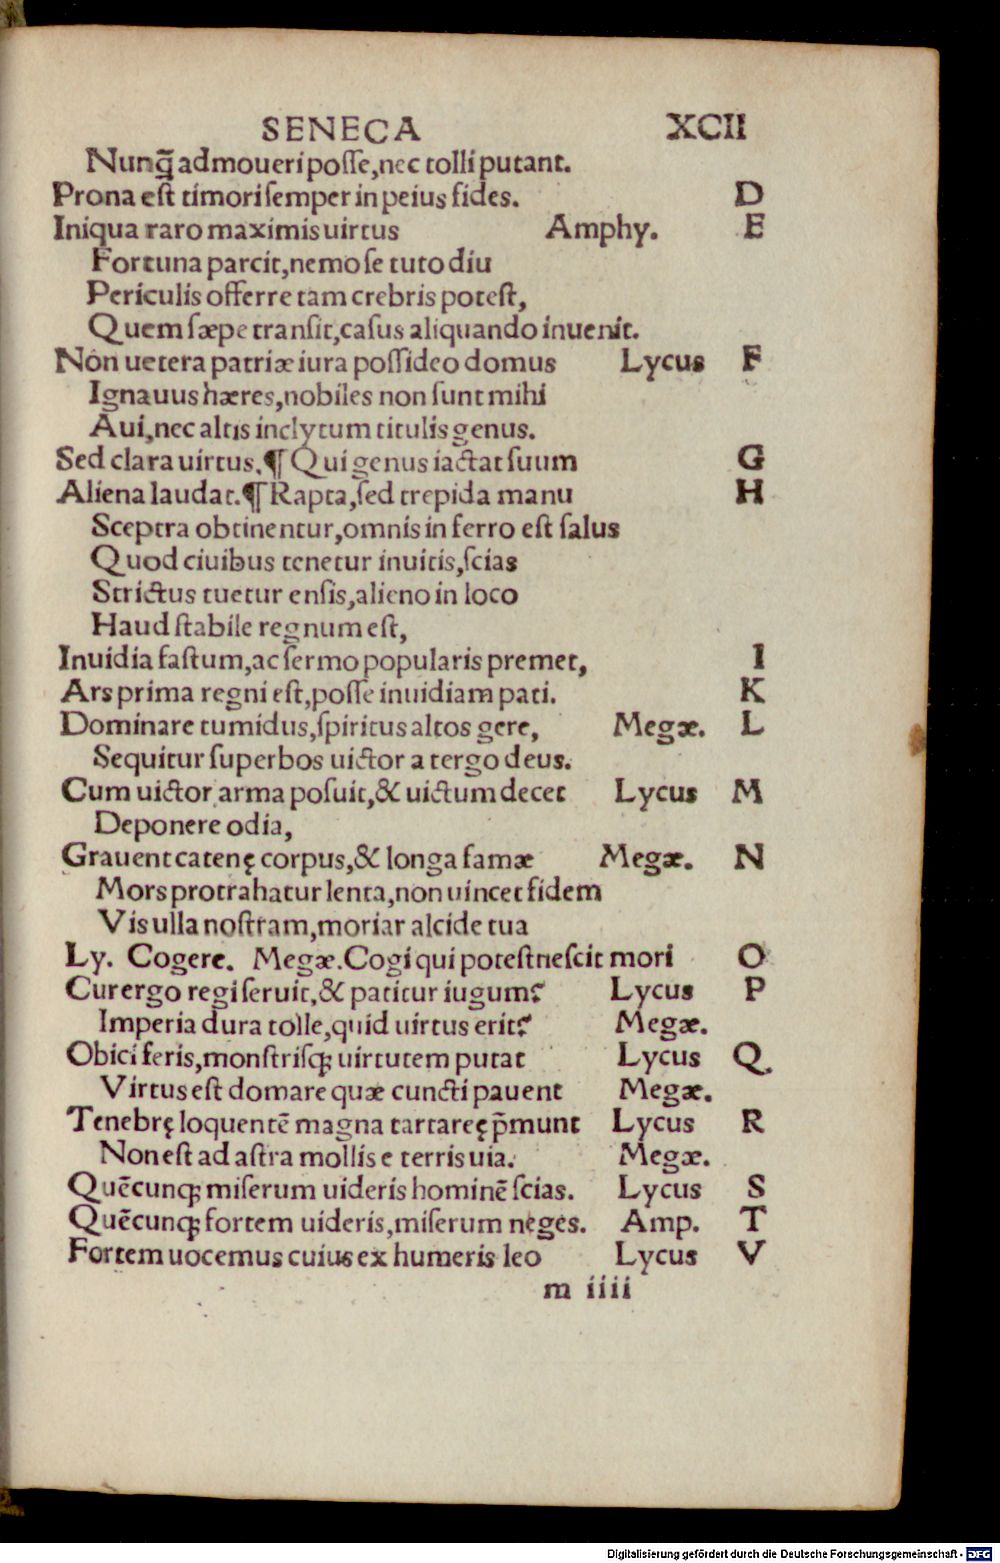 SENECA XCII
Nunq̃ admoueri posse, nec tolli putant.
Prona est timori semper in peius fides. D
Iniqua raro maximis uirtus Amphy. E
Fortuna parcit, nemo se tuto diu
Periculis offerre tam crebris potest,
Quem sæpe transit, casus aliquando inuenit.
Non uetera patriæ iura possideo domus Lycus F
Ignauus hæres, nobiles non sunt mihi
Aui, nec altis inclytum titulis genus.
Sed clara uirtus. ¶ Qui genus iactat suum G
Aliena laudat. ¶ Rapta, sed trepida manu H
Sceptra obtinentur, omnis in ferro est salus
Quod ciuibus tenetur inuitis, scias
Strictus tuetur ensis, alieno in loco
Haud stabile regnum est,
Inuidia fastum, ac sermo popularis premet, I
Ars prima regni est, posse inuidiam pati. K
Dominare tumidus, spiritus altos gere, Megæ. L
Sequitur superbos uictor a tergo deus.
Cum uictor arma posuit, & uictum decet Lycus M
Deponere odia,
Grauent catenę corpus, & longa famæ Megæ. N
Mors protrahatur lenta, non uincet fidem
Vis ulla nostram, moriar alcide tua
Ly. Cogere. Megæ. Cogi qui potest nescit mori O
Cur ergo regi seruit, & patitur iugum? Lycus P
Imperia dura tolle, quid uirtus erit? Megæ.
Obici feris, monstrisqꝫ uirtutem putat Lycus Q.
Virtus est domare quæ cuncti pauent Megæ.
Tenebrę loquentē magna tartareę p̃munt Lycus R
Non est ad astra mollis e terris uia. Megæ.
Quēcunqꝫ miserum uideris hominē scias. Lycus S
Quēcunqꝫ fortem uideris, miserum neges. Amp. T
Fortem uocemus cuius ex humeris leo Lycus V
m iiii
Digitalisierung gefördert durch die Deutsche Forschungsgemeinschaft - DFG